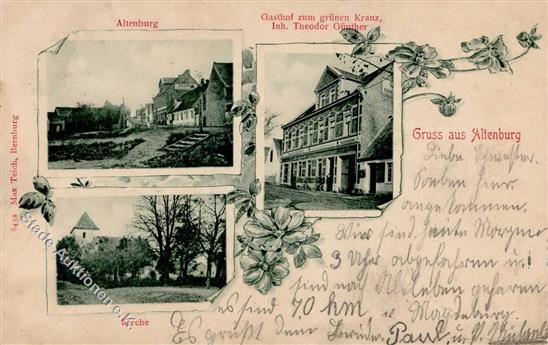 Altenburg
Gasthof zum grünen Kranz,
Inh. Theodor Günther
Gruss aus Altenburg
8432 Max Teich, Bernburg
Kirche
Liebe Schwester.
Soeben hier
angekommen.
Wir sind heute Morgen
3 Uhr abgefahren u.
sind nach Alsleben gefahren
es sind 70 km v. Magdeburg.
Es grüßt Dein Bruder Paul, u.
Stade Auktionen